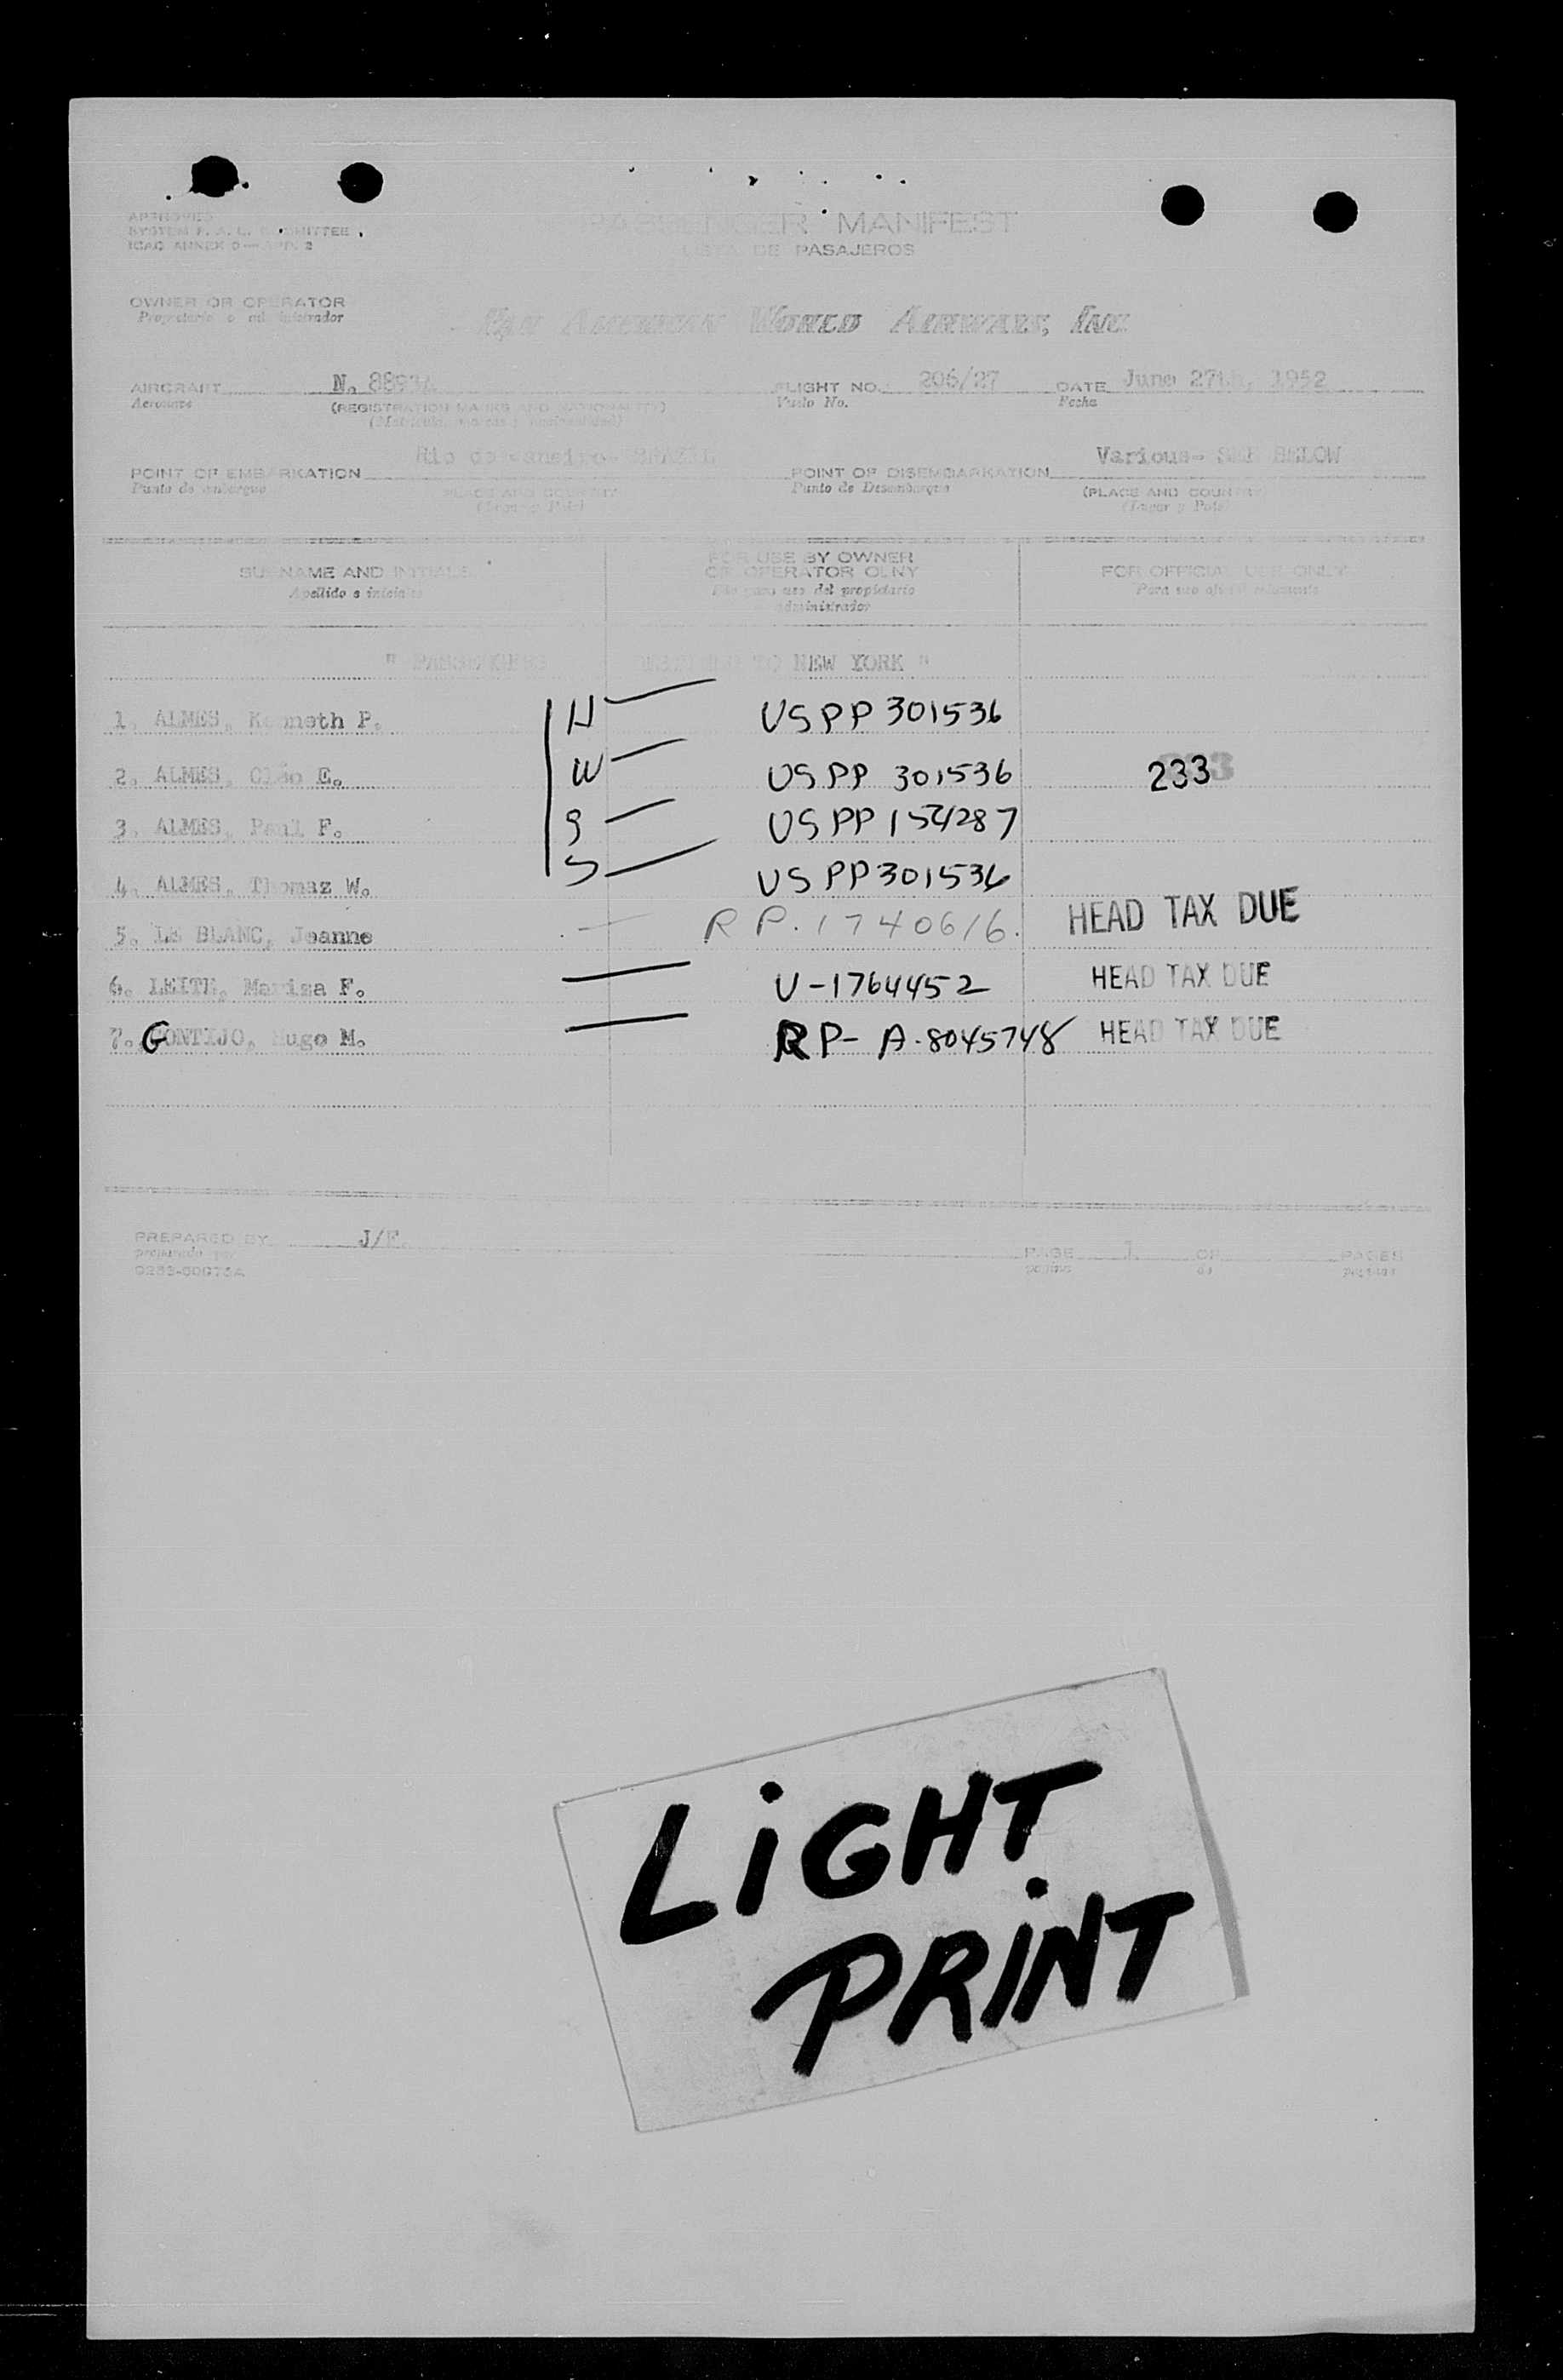 APPROVED
SYSTEM F. A. L. COMMITTEE
ICAO ANNEX 9 — APP. 2
PASSENGER MANIFEST
LISTA DE PASAJEROS
OWNER OR OPERATOR
Propietario o administrador
PAN AMERICAN WORLD AIRWAYS, INC.
AIRCRAFT N. 8893A FLIGHT NO. 206/27 DATE June 27th, 1952
Aeronave (REGISTRATION MARKS AND NATIONALITY) Vuelo No. Fecha
(Matricula, marcas y nacionalidad)
POINT OF EMBARKATION Rio de Janeiro- BRAZIL POINT OF DISEMBARKATION Various- SEE BELOW
Punto de embarque (PLACE AND COUNTRY) Punto de Desembarque (PLACE AND COUNTRY)
(Lugar y Pais) (Lugar y Pais)
SURNAME AND INITIALS FOR USE BY OWNER OR OPERATOR OLNY FOR OFFICIAL USE ONLY
Apellido e iniciales para uso del propietario administrador Para uso oficial
" PASSENGERS DESTINED TO NEW YORK "
1. ALMES, Kenneth P. H USPP 301536
2. ALMES, E. W USPP 301536 233
3. ALMES, Paul F. S USPP 154287
4. ALMES, Thomaz W. S USPP 301536
5. LE BLANC, Jeanne RP. 1740616. HEAD TAX DUE
6. LEITE, Mariza F. U-1764452 HEAD TAX DUE
7. GONTIJO, Hugo M. RP- A-8045748 HEAD TAX DUE
PREPARED BY J/F. PAGE 1 OF PAGES
preparado por pagina de paginas
LiGHT
PRiNT